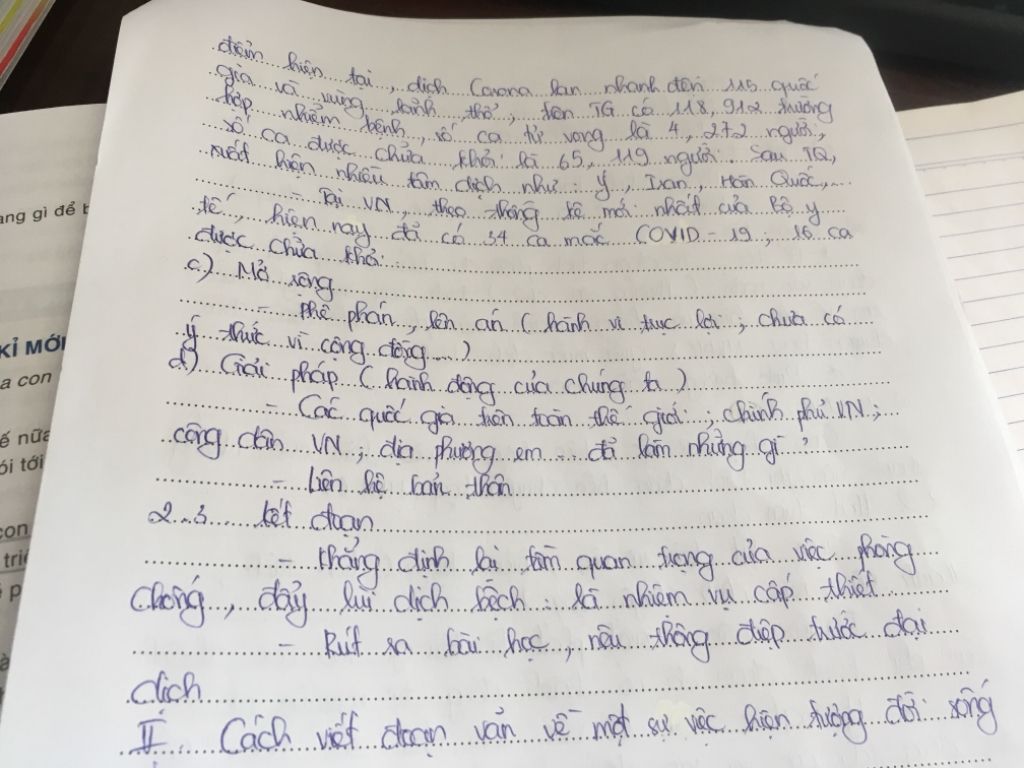 điểm hiện tại, dịch Corona lan nhanh đến 115 quốc
gia và vùng lãnh thổ, trên TG có 118,912 trường
hợp nhiễm bệnh, số ca tử vong là 4,272 người,
số ca được chữa khỏi là 65,119 người. Sau TQ,
xuất hiện nhiều tâm dịch như: Ý, Iran, Hàn Quốc,...
- Tại VN, theo thống kê mới nhất của Bộ y
tế, hiện nay đã có 34 ca mắc COVID-19; 16 ca
được chữa khỏi.
c) Mở rộng
- Phê phán, lên án (hành vi trục lợi; chưa có
ý thức vì cộng đồng...)
d) Giải pháp (hành động của chúng ta)
- Các quốc gia trên toàn thế giới; chính phủ VN;
công dân VN; địa phương em - đã làm những gì?
- Liên hệ bản thân
2.3. Kết đoạn
- Khẳng định lại tầm quan trọng của việc phòng
chống, đẩy lùi dịch bệch là nhiệm vụ cấp thiết
- Rút ra bài học, nêu thông điệp trước đại
dịch
II. Cách viết đoạn văn về một sự việc hiện tượng đời sống
ang gì để b
KỈ MỚI
a con
ế nữa
ói tới
con
triể